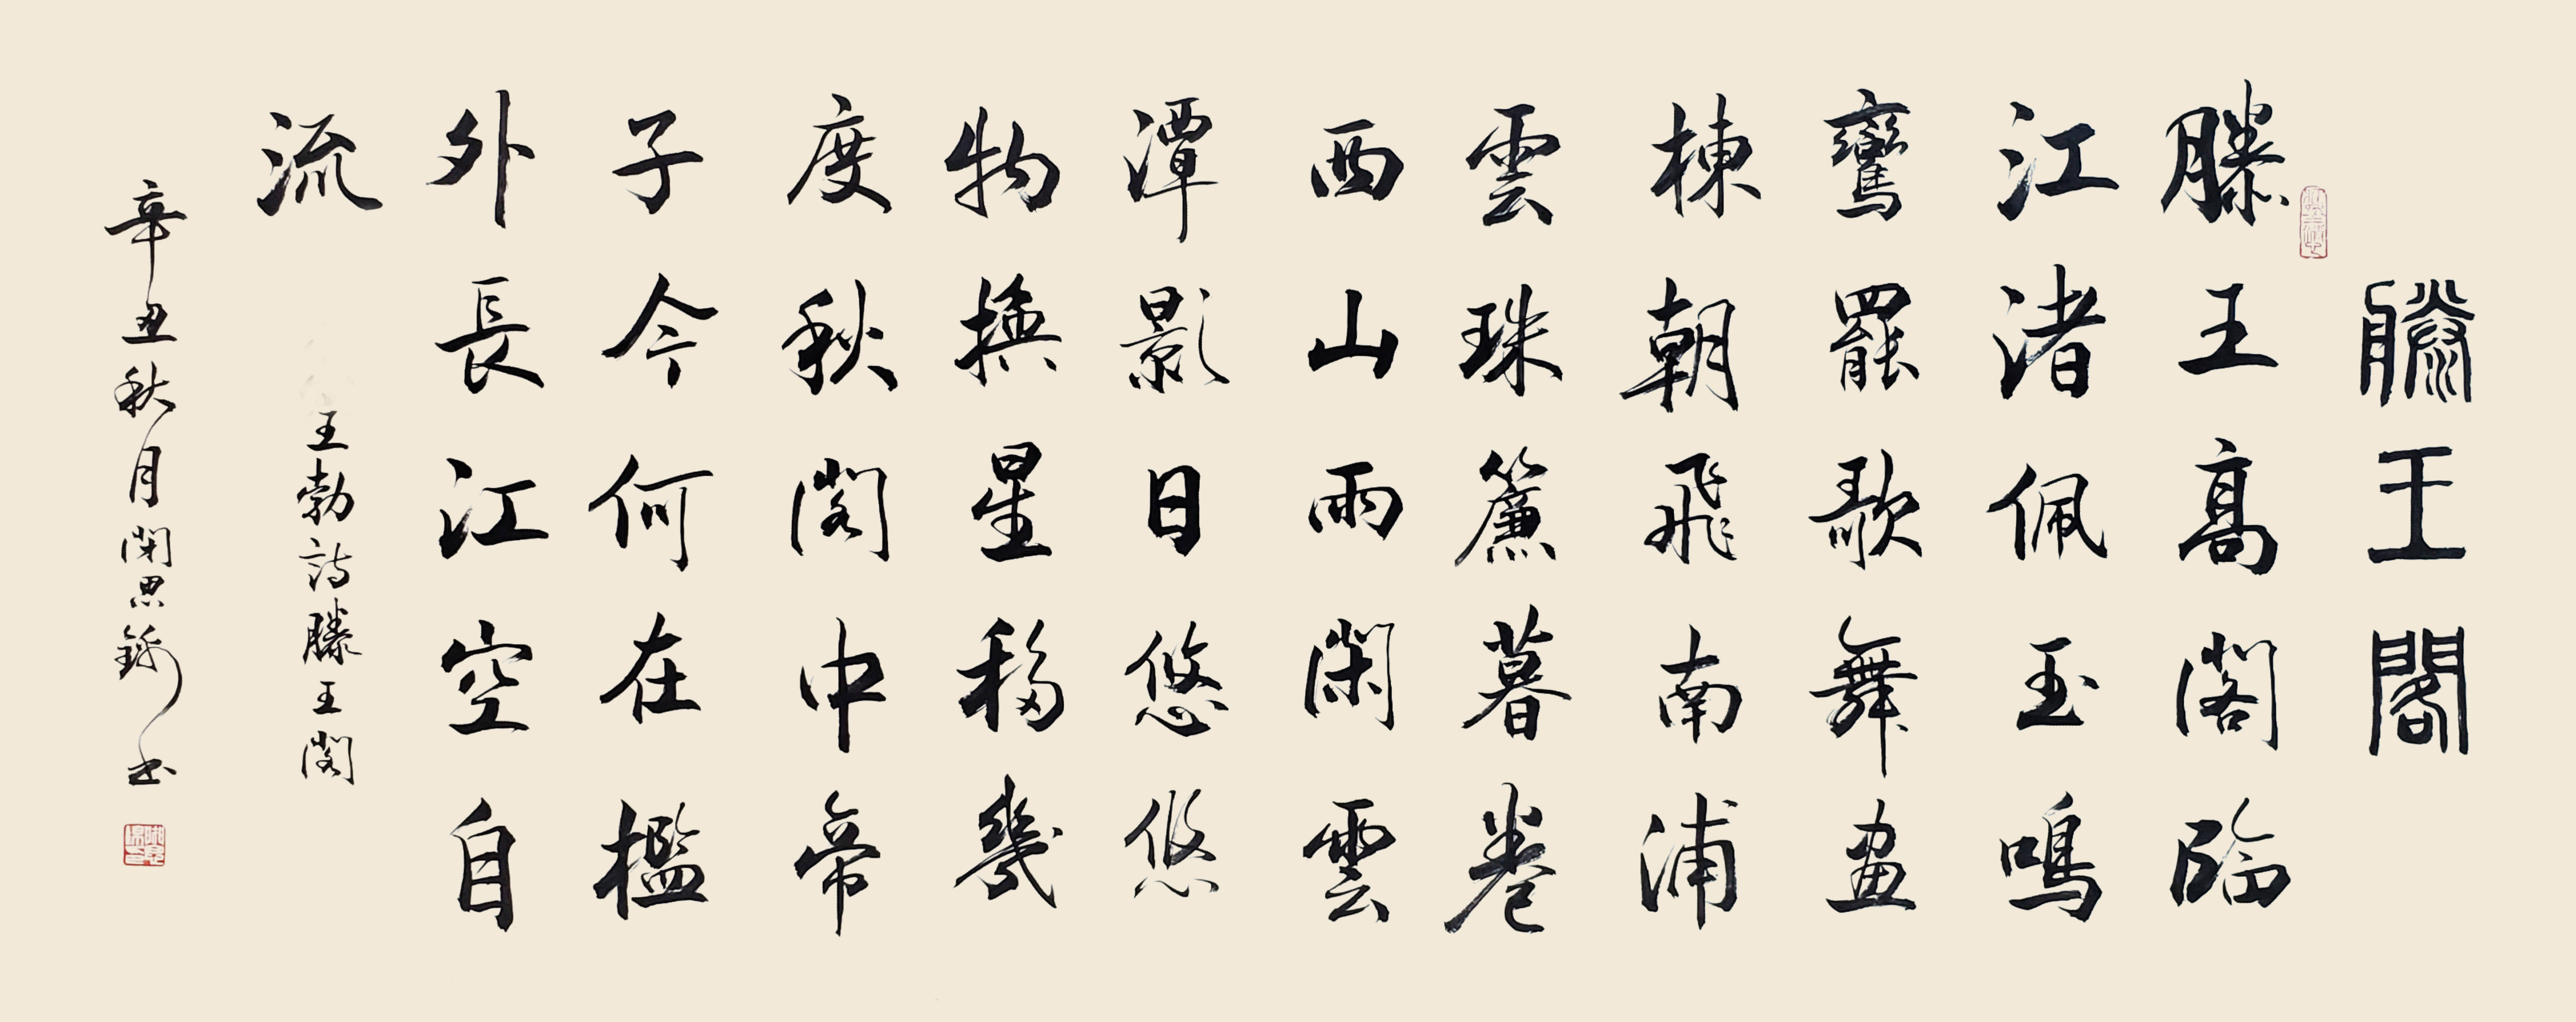 滕王閣
滕王高閣臨
江渚佩玉鳴
鸞罷歌舞畫
棟朝飛南浦
雲珠簾暮卷
西山雨閑雲
潭影日悠悠
物換星移幾
度秋閣中帝
子今何在檻
外長江空自
流
王勃詩滕王閣
辛丑秋月思書